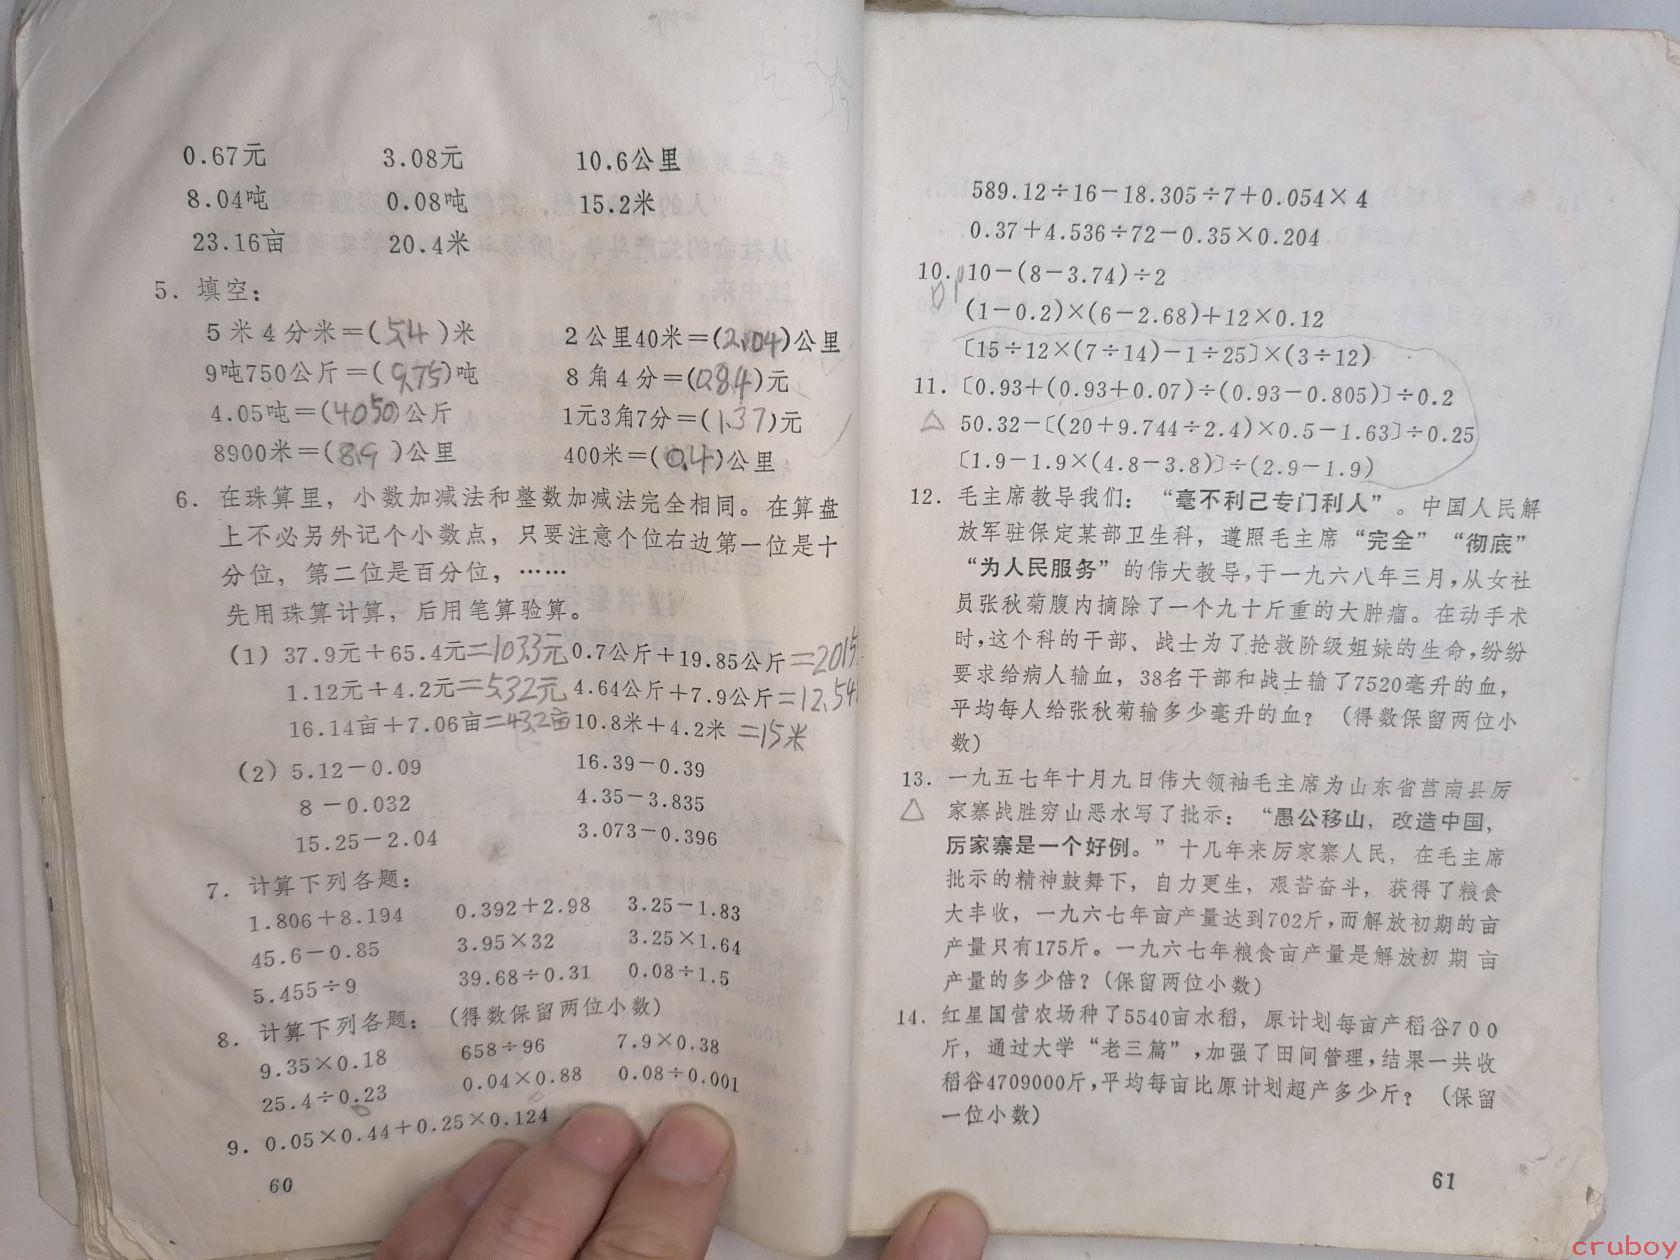 0.67元 3.08元 10.6公里
8.04吨 0.08吨 15.2米
23.16亩 20.4米
5. 填空：
5米4分米＝(5.4)米 2公里40米＝(2.04)公里
9吨750公斤＝(9.75)吨 8角4分＝(0.84)元
4.05吨＝(4050)公斤 1元3角7分＝(1.37)元
8900米＝(8.9)公里 400米＝(0.4)公里
6. 在珠算里，小数加减法和整数加减法完全相同。在算盘
上不必另外记个小数点，只要注意个位右边第一位是十
分位，第二位是百分位，……
先用珠算计算，后用笔算验算。
(1) 37.9元＋65.4元＝103.3元 0.7公斤＋19.85公斤＝2015
1.12元＋4.2元＝5.32元 4.64公斤＋7.9公斤＝12.54
16.14亩＋7.06亩＝43.2亩 10.8米＋4.2米＝15米
(2) 5.12－0.09 16.39－0.39
8－0.032 4.35－3.835
15.25－2.04 3.073－0.396
7. 计算下列各题：
1.806＋8.194 0.392＋2.98 3.25－1.83
45.6－0.85 3.95×32 3.25×1.64
5.455÷9 39.68÷0.31 0.08÷1.5
8. 计算下列各题：(得数保留两位小数)
9.35×0.18 658÷96 7.9×0.38
25.4÷0.23 0.04×0.88 0.08÷0.001
9. 0.05×0.44＋0.25×0.124
60
589.12÷16－18.305÷7＋0.054×4
0.37＋4.536÷72－0.35×0.204
10. 10－(8－3.74)÷2
(1－0.2)×(6－2.68)＋12×0.12
〔15÷12×(7÷14)－1÷25〕×(3÷12)
11. 〔0.93＋(0.93＋0.07)÷(0.93－0.805)〕÷0.2
△ 50.32－〔(20＋9.744÷2.4)×0.5－1.63〕÷0.25
〔1.9－1.9×(4.8－3.8)〕÷(2.9－1.9)
12. 毛主席教导我们：“毫不利己专门利人”。中国人民解
放军驻保定某部卫生科，遵照毛主席“完全”“彻底”
“为人民服务”的伟大教导，于一九六八年三月，从女社
员张秋菊腹内摘除了一个九十斤重的大肿瘤。在动手术
时，这个科的干部、战士为了抢救阶级姐妹的生命，纷纷
要求给病人输血，38名干部和战士输了7520毫升的血，
平均每人给张秋菊输多少毫升的血？(得数保留两位小
数)
13. 一九五七年十月九日伟大领袖毛主席为山东省莒南县厉
△ 家寨战胜穷山恶水写了批示：“愚公移山，改造中国，
厉家寨是一个好例。”十几年来厉家寨人民，在毛主席
批示的精神鼓舞下，自力更生，艰苦奋斗，获得了粮食
大丰收，一九六七年亩产量达到702斤，而解放初期的亩
产量只有175斤。一九六七年粮食亩产量是解放初期亩
产量的多少倍？(保留两位小数)
14. 红星国营农场种了5540亩水稻，原计划每亩产稻谷700
斤，通过大学“老三篇”，加强了田间管理，结果一共收
稻谷4709000斤，平均每亩比原计划超产多少斤？(保留
一位小数)
61
cruboy